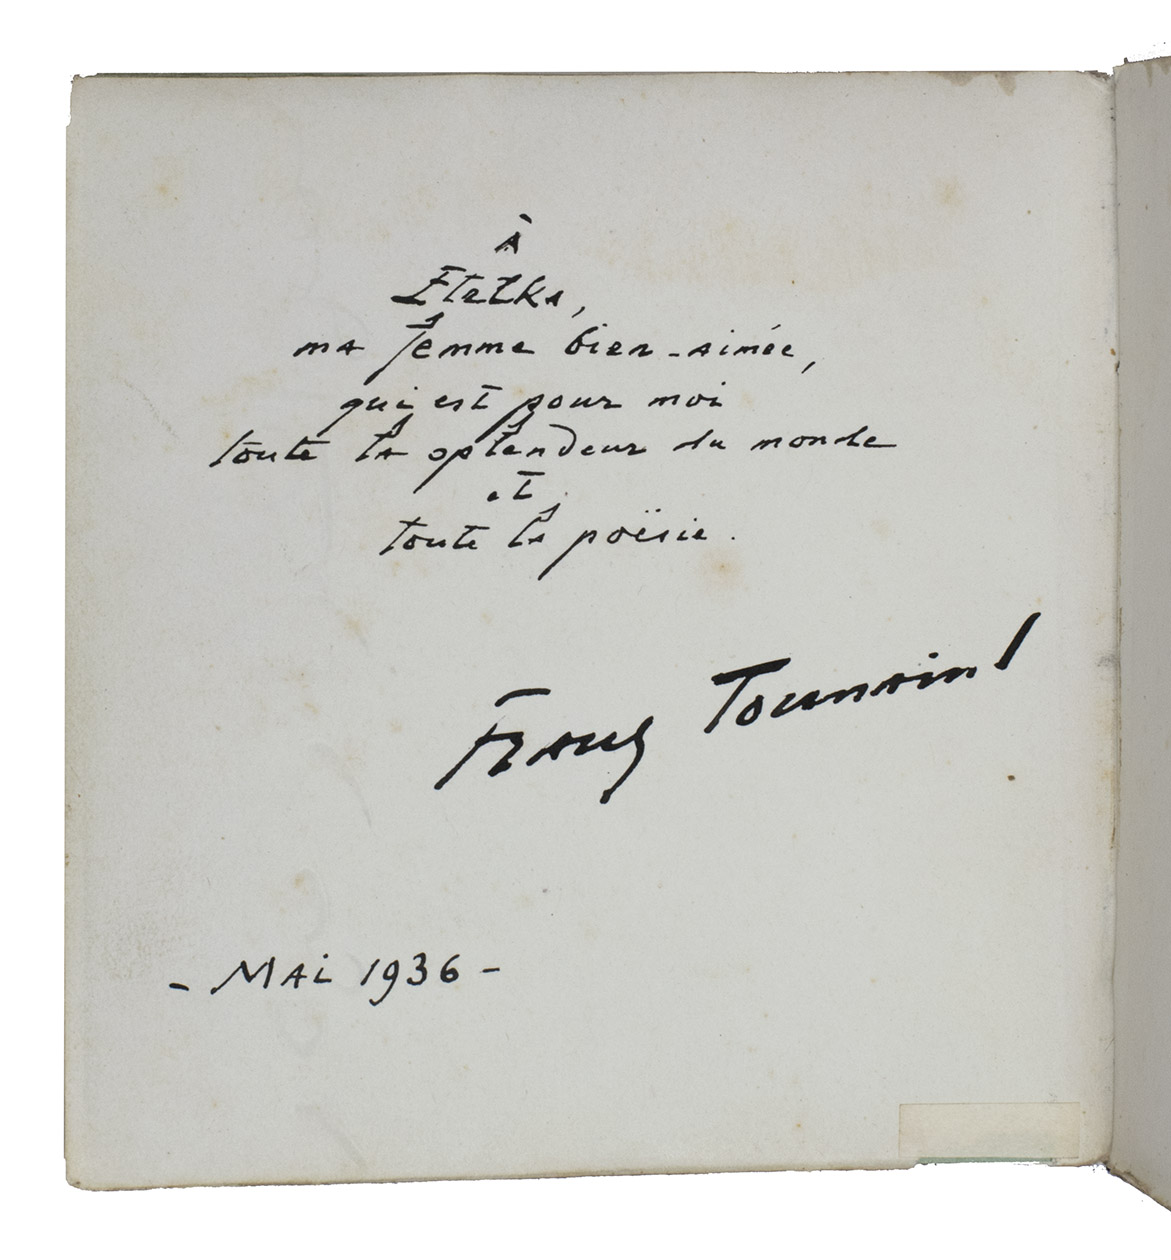 À
Etelka,
ma femme bien-aimée,
qui est pour moi
toute la splendeur du monde
et
toute la poësie.
Franz Toussaint
- MAi 1936 -